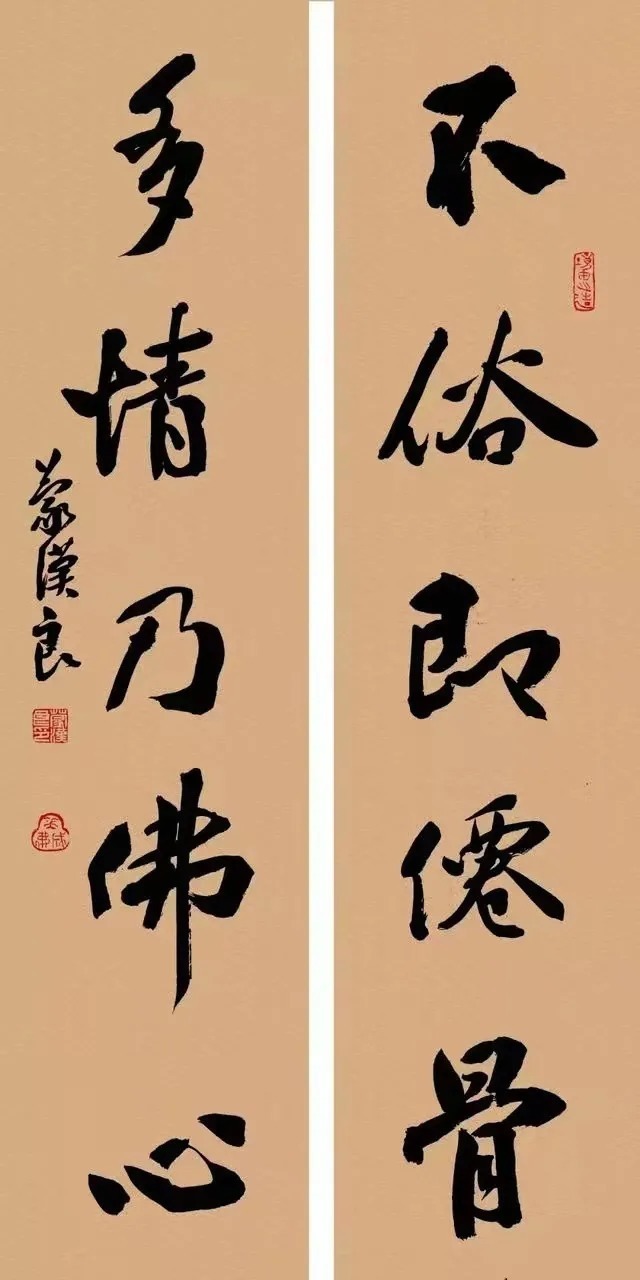 不俗即僊骨
多情乃佛心
蒙漢良